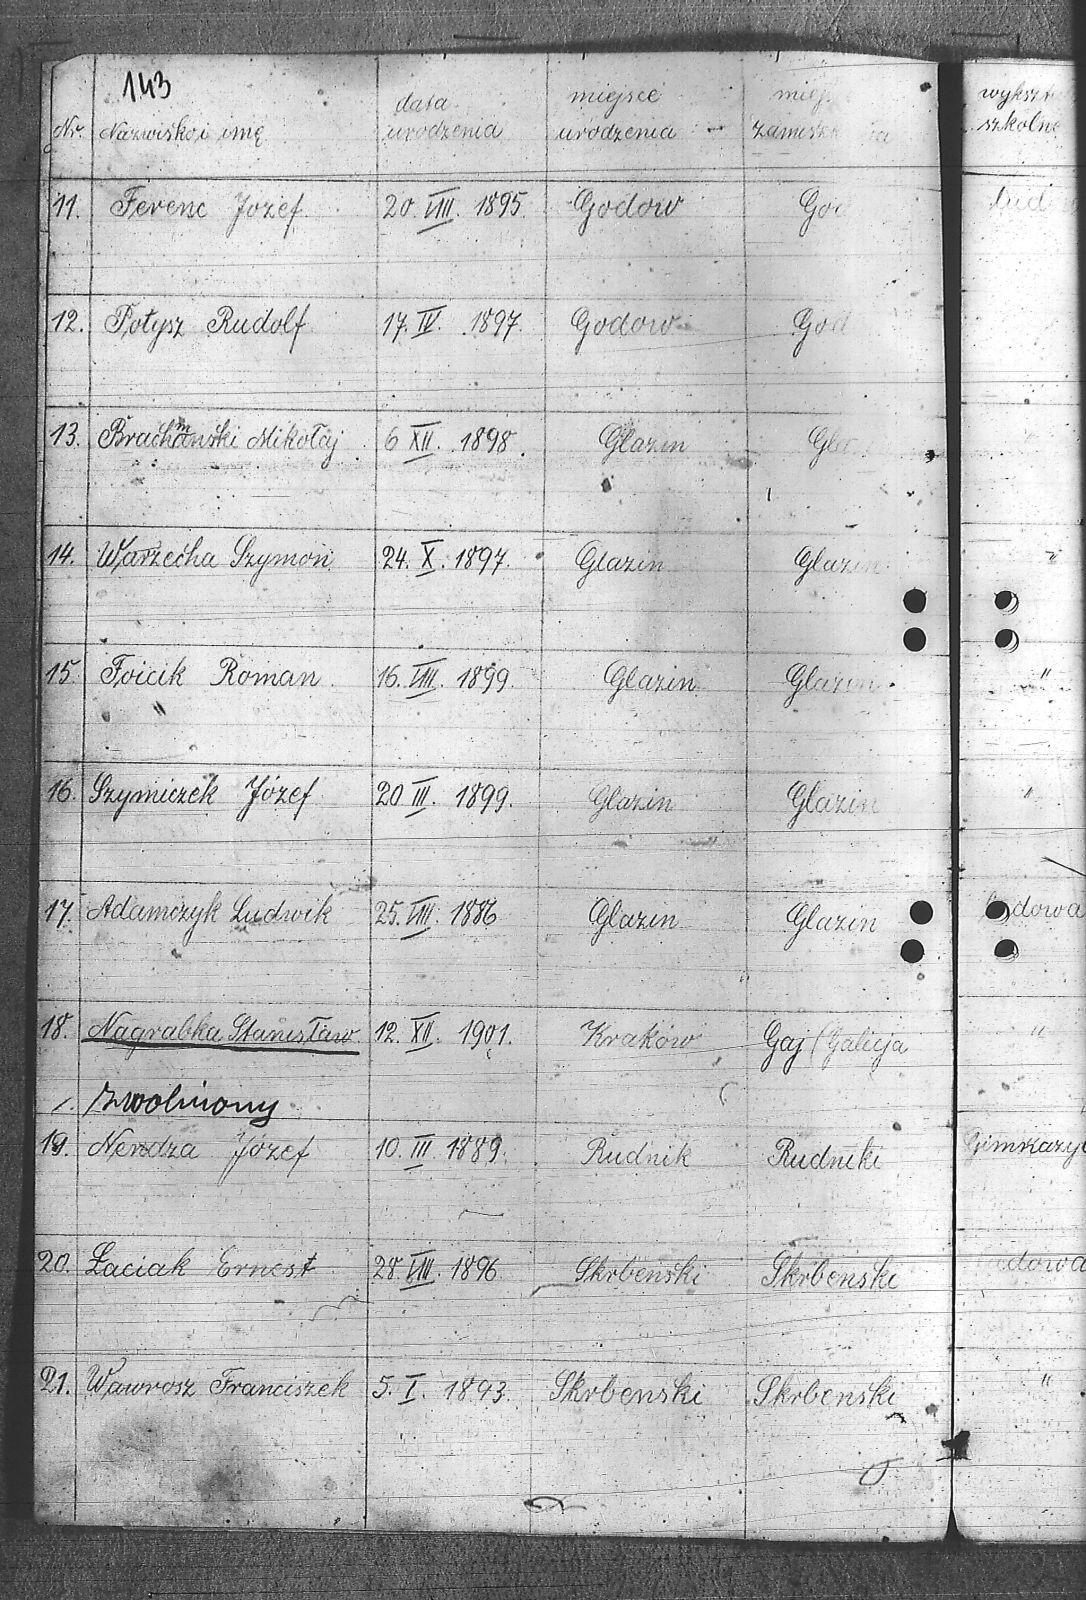 143
Nr. Nazwisko i imę data urodzenia miejsce urodzenia zamiesz wykszt szkolne
11. Ferenc Józef 20. VIII. 1895. Godow God lud
12. Połysz Rudolf 17. IV. 1897. Godow God
13. Brachmański Mikołaj 6 XII. 1898. Glazin Gla
14. Warzecha Szymon 24. X. 1897. Glazin Glazin "
15. Foicik Roman 16. VIII. 1899. Glazin Glazin "
16. Szymiczek Józef 20 III. 1899. Glazin Glazin "
17. Adamczyk Ludwik 25. VIII. 1886 Glazin Glazin ludowa
18. Nagrabka Stanisław 12. XII. 1901. Kraków Gaj (Galicja "
zwolniony
19. Nendza Józef 10. III 1889. Rudnik Rudniki Gimnazy
20. Łaciak Ernest 28. VIII. 1896 Skrbeński Skrbenski ludowa
21. Wawrosz Franciszek 5. I. 1893. Skrbenski Skrbenski "